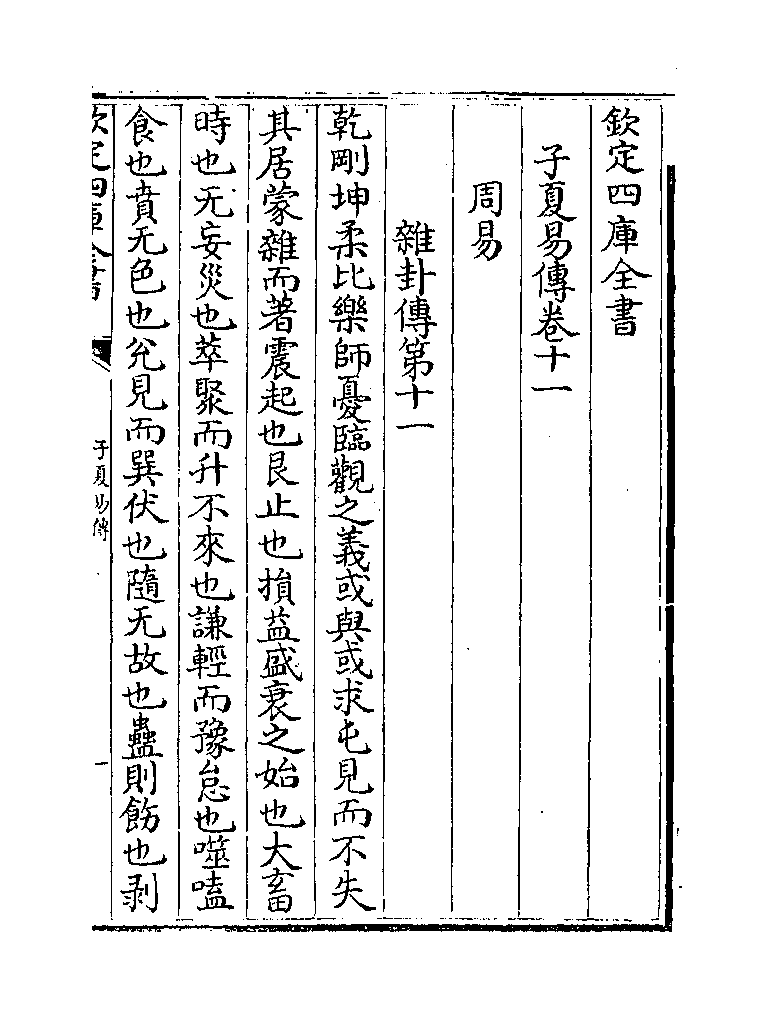 欽定四庫全書
子夏易傳卷十一
周易
雜卦傳第十一
乾剛坤柔比樂師憂臨觀之義或與或求屯見而不失
其居蒙雜而著震起也艮止也損益盛衰之始也大畜
時也无妄災也萃聚而升不來也謙輕而豫怠也噬嗑
食也賁无色也兌見而巽伏也隨无故也蠱則飭也剥
欽定四庫全書
子夏易傳
一